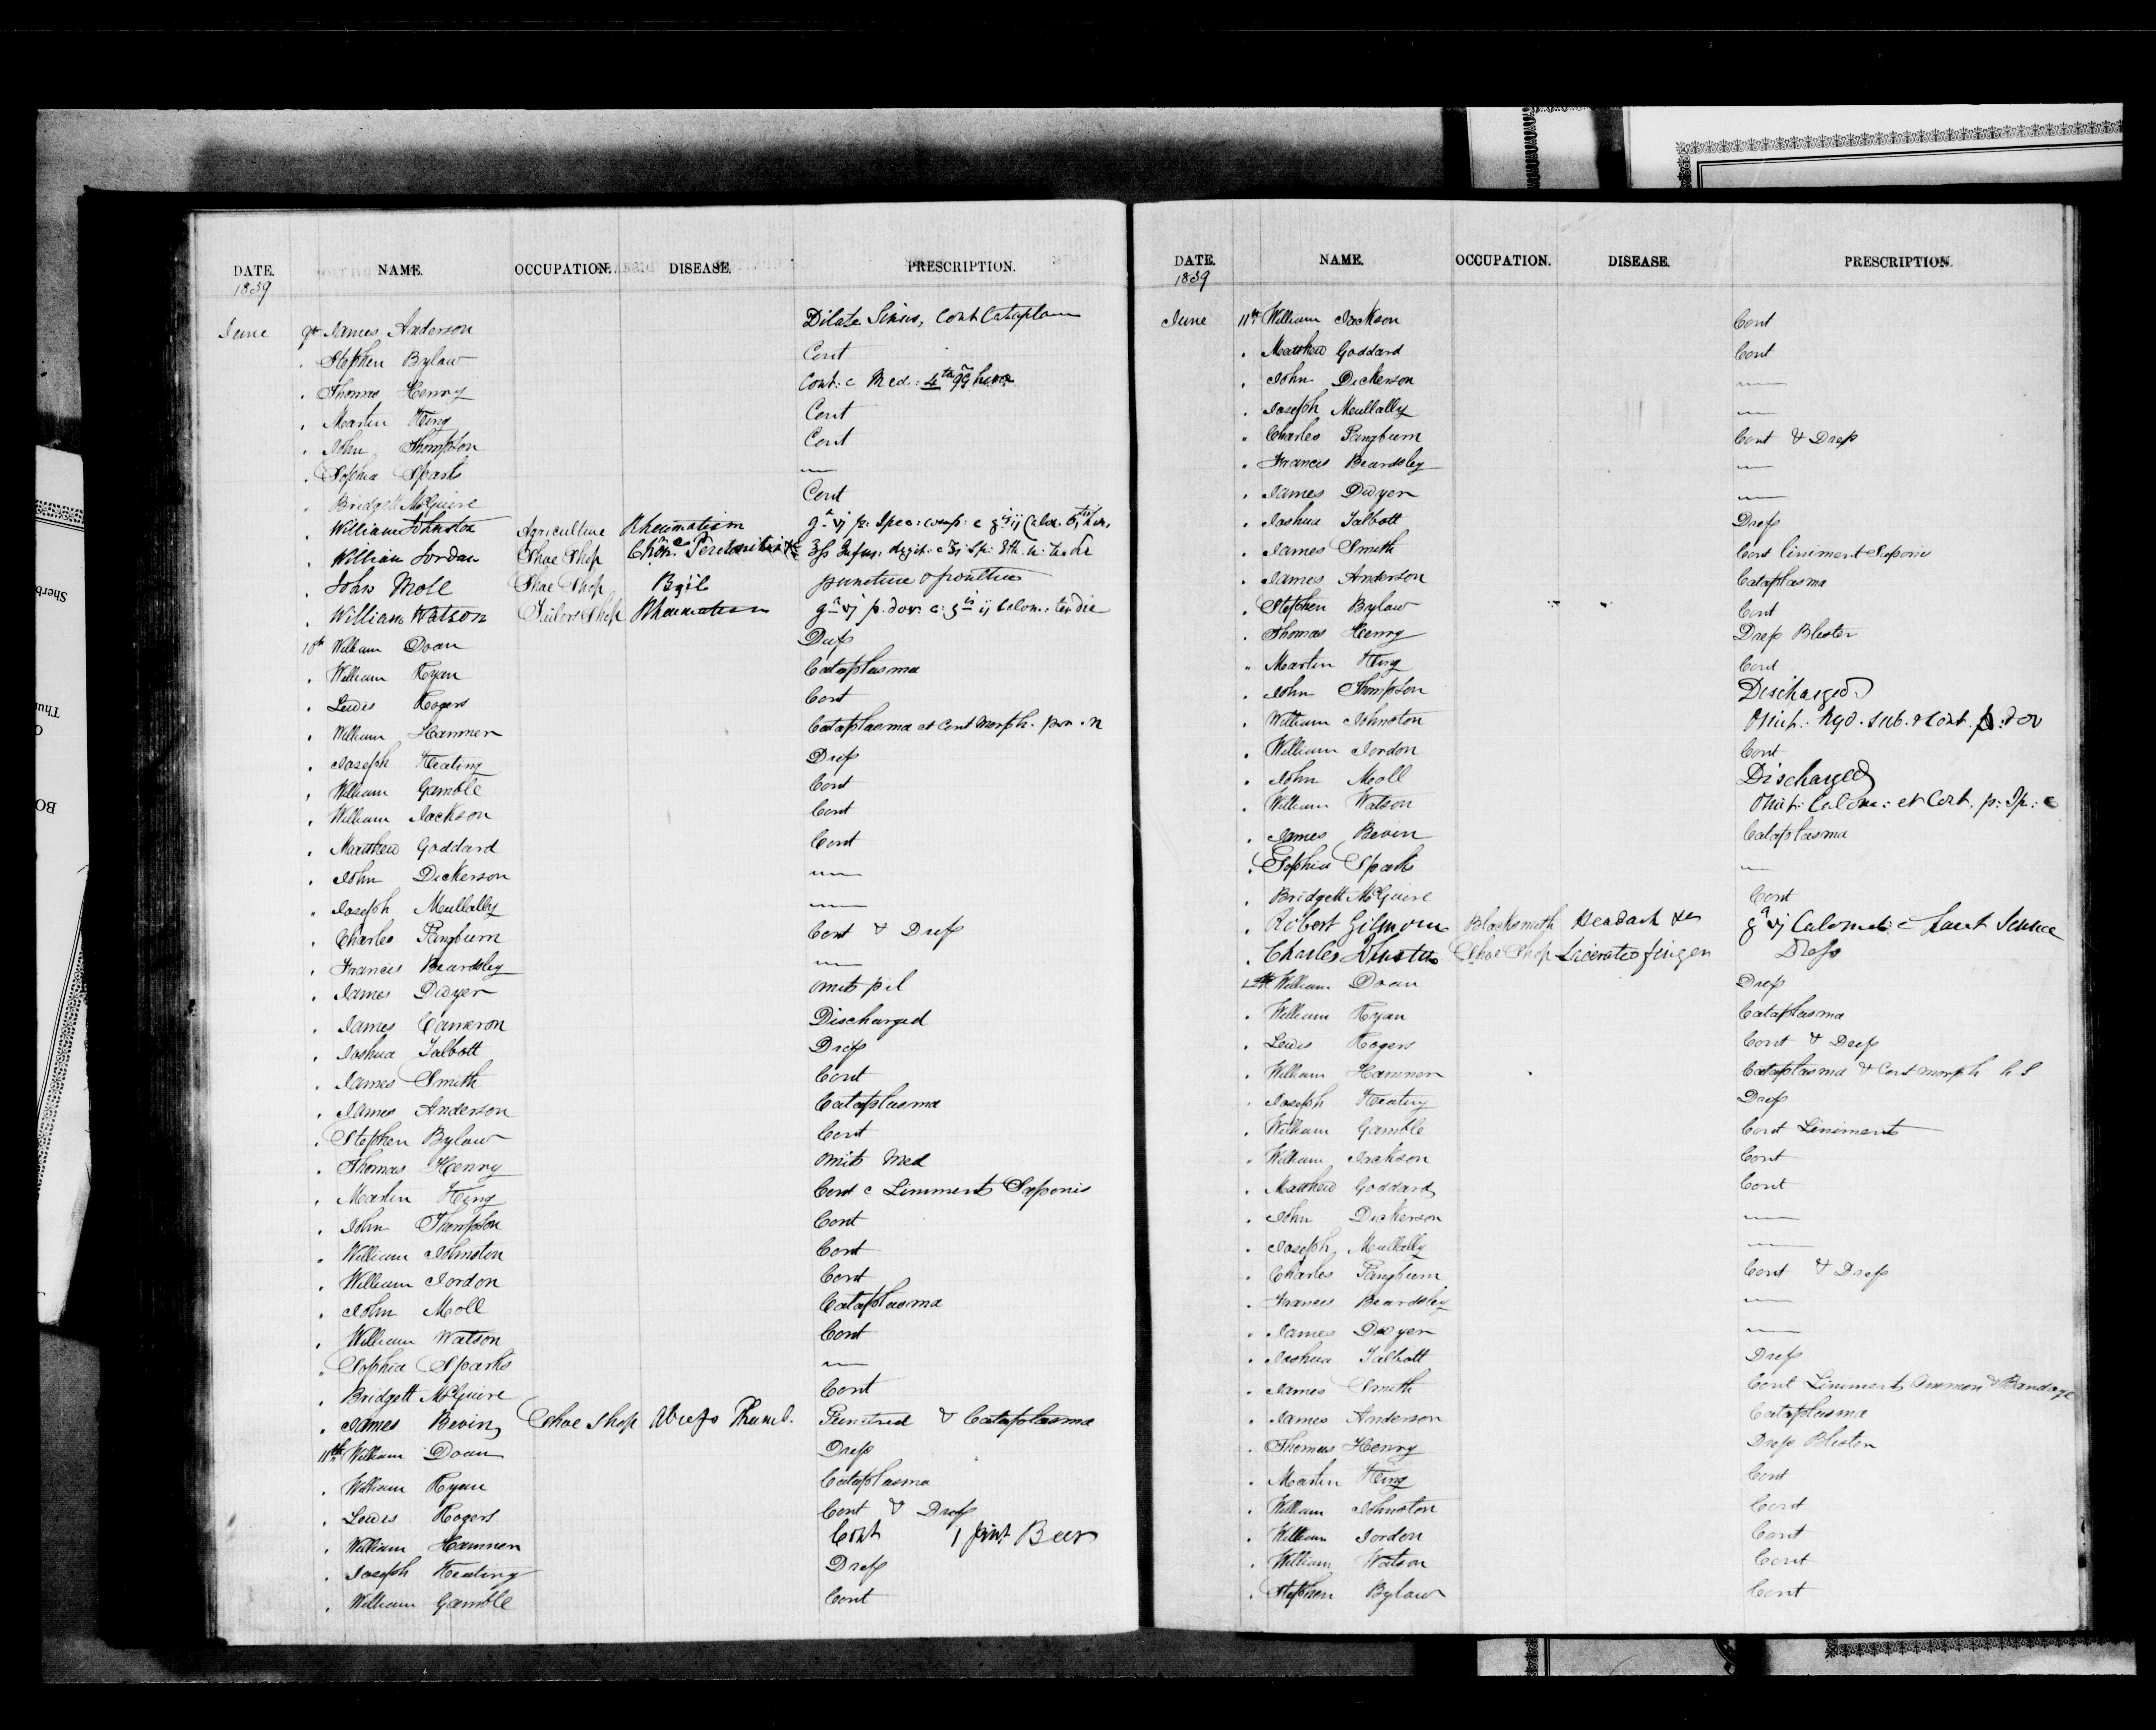 DATE. NAME. OCCUPATION. DISEASE. PRESCRIPTION.
1839
June 9th James Anderson Dilate Sinus, Cont Cataplasm
. Stephen Bylaw Cont
. Thomas Henry Cont: c Med: 4th qq hora
. Martin King Cont
. John Thompson Cont
. Sophia Sparks —
. Bridgett McGuire Cont
. William Johnston Agriculture Rheumatism
. William Jordan Shoe Shop Chronc Peritonitis
. John Moll Shoe Shop Boil puncture & poultice
. William Watson Tailors Shop Rheumatism
10th William Doan Dress
. William Ryan Cataplasma
. Lewis Rogers Cont
. William Hamner Cataplasma et Cont Morph. pro. n
. Joseph Keating Dress
. William Gamble Cont
. William Jackson Cont
. Matthew Goddard Cont
. John Dickerson —
. Joseph Mullally —
. Charles Pangburn Cont & Dress
. Francis Beardsley —
. James Dwyer Omit pil
. James Cameron Discharged
. Joshua Talbott Dress
. James Smith Cont
. James Anderson Cataplasma
. Stephen Bylaw Cont
. Thomas Henry Omit Med
. Martin King Cont c Liniment Saponis
. John Thompson Cont
. William Johnston Cont
. William Jordon Cont
. John Moll Cataplasma
. William Watson Cont
. Sophia Sparks —
. Bridgett McGuire Cont
. James Bevin Shoe Shop Absess Thumb. Punctred & Cataplasma
11th William Doan Dress
. William Ryan Cataplasma
. Lewis Rogers Cont & Dress
. William Hamner Cont 1 pint Beer
. Joseph Keating Dress
. William Gamble Cont
DATE. NAME. OCCUPATION. DISEASE. PRESCRIPTION.
1839
June 11th William Jackson Cont
. Matthew Goddard Cont
. John Dickerson —
. Joseph Mullally —
. Charles Pangburn Cont & Dress
. Francis Beardsley —
. James Dwyer —
. Joshua Talbott Dress
. James Smith Cont Liniment Saponis
. James Anderson Cataplasma
. Stephen Bylaw Cont
. Thomas Henry Dress Blister
. Martin King Cont
. John Thompson Discharged
. William Johnston Omit. hyd. sub. & Cont. p. dov
. William Jordon Cont
. John Moll Discharged
. William Watson Omit: Calom: et Cont. p: Ip: c
. James Bevin Cataplasma
. Sophia Sparks —
. Bridgett McGuire Cont
. Robert Gilmour Blacksmith Headach &c
. Charles Shoe Shop Lacerated finger Dress
12th William Doan Dress
. William Ryan Cataplasma
. Lewis Rogers Cont & Dress
. William Hamner Cataplasma & Cont morph h S
. Joseph Keating Dress
. William Gamble Cont Liniment
. William Jackson Cont
. Matthew Goddard Cont
. John Dickerson —
. Joseph Mullally —
. Charles Pangburn Cont & Dress
. Francis Beardsley —
. James Dwyer —
. Joshua Talbott Dress
. James Smith Cont Liniment Ammon & Bandage
. James Anderson Cataplasma
. Thomas Henry Dress Blister
. Martin King Cont
. William Johnston Cont
. William Jordon Cont
. William Watson Cont
. Stephen Bylaw Cont